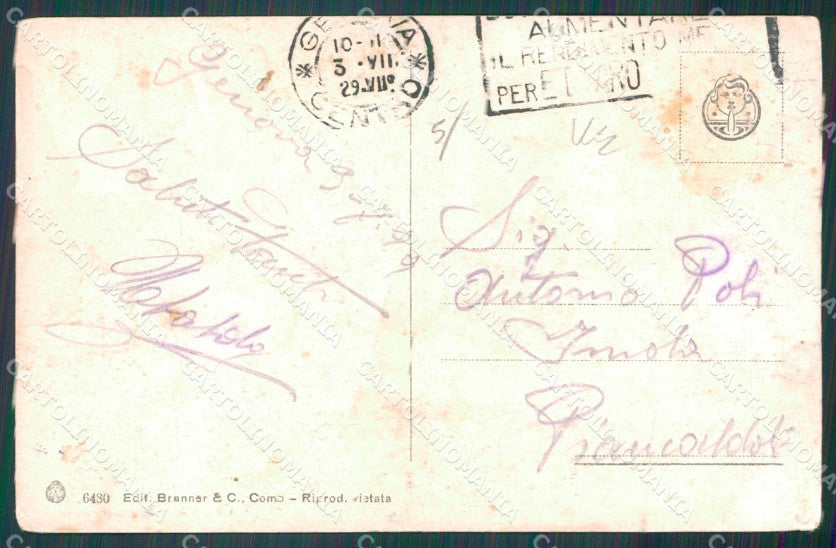 GENOVA
10-11
3 · VII
29·VII°
CENTRO
AUMENTARE
IL RENDIMENTO ME
PER ETTARO
5/
Genova 3-7-29
Saluti
Sig.
Antonio Poli
Imola
Piancaldoli
6480 Edit. Brunner & C., Como – Riprod. vietata
CARTOLINOMANIA